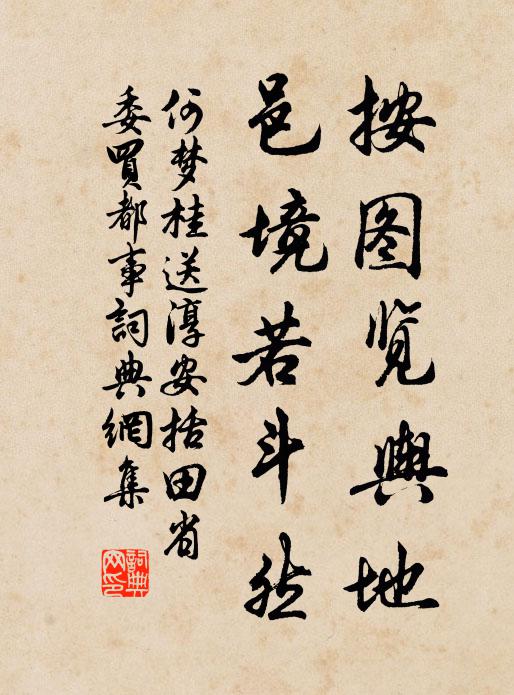 按图览舆地
邑境若斗然
何梦桂送淳安括田省
委買都事詞典網集
詞典网印